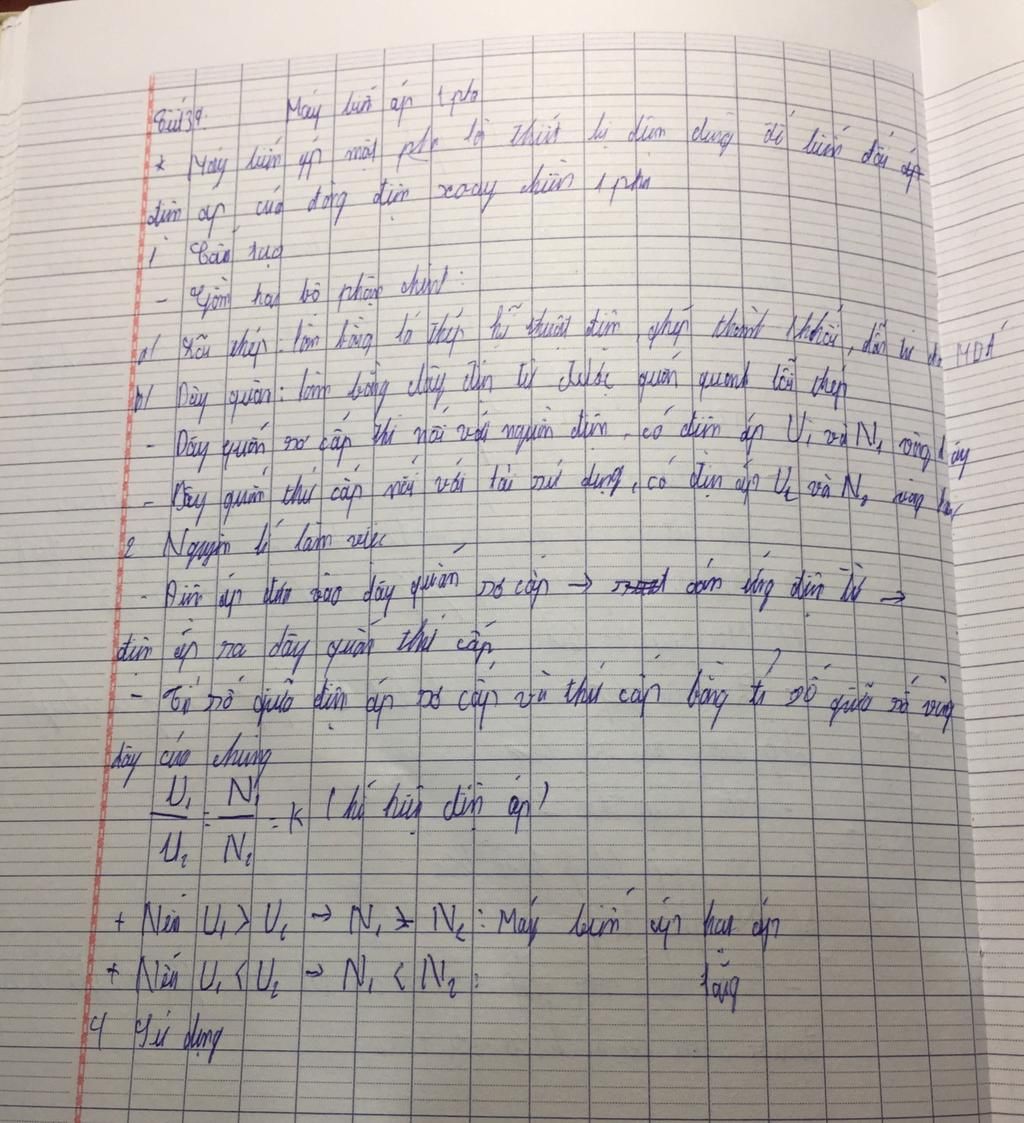 Tiết 39. Máy biến áp 1 pha
* Máy biến áp một pha là thiết bị điện dùng để biến đổi áp
điện áp của dòng điện xoay chiều 1 pha
1 Cấu tạo
- Gồm hai bộ phận chính:
a/ Lõi thép: làm bằng lá thép kĩ thuật điện ghép thành 1 khối, dẫn từ cho MBA
b/ Dây quấn: làm bằng dây điện từ được quấn quanh lõi thép
- Dây quấn sơ cấp thì nối với nguồn điện, có điện áp U₁ và N₁ vòng dây
- Dây quấn thứ cấp nối với tải sử dụng, có điện áp U₂ và N₂ vòng
2 Nguyên lí làm việc
- Điện áp đưa vào dây quấn sơ cấp → cảm ứng điện từ →
điện áp ra dây quấn thứ cấp
- Tỉ số giữa điện áp sơ cấp và thứ cấp bằng tỉ số giữa số vòng
dây của chúng
U₁/U₂ = N₁/N₂ = K (hệ điện áp)
+ Nếu U₁ > U₂ → N₁ > N₂: Máy biến áp hạ áp
+ Nếu U₁ < U₂ → N₁ < N₂: tăng
4 Sử dụng